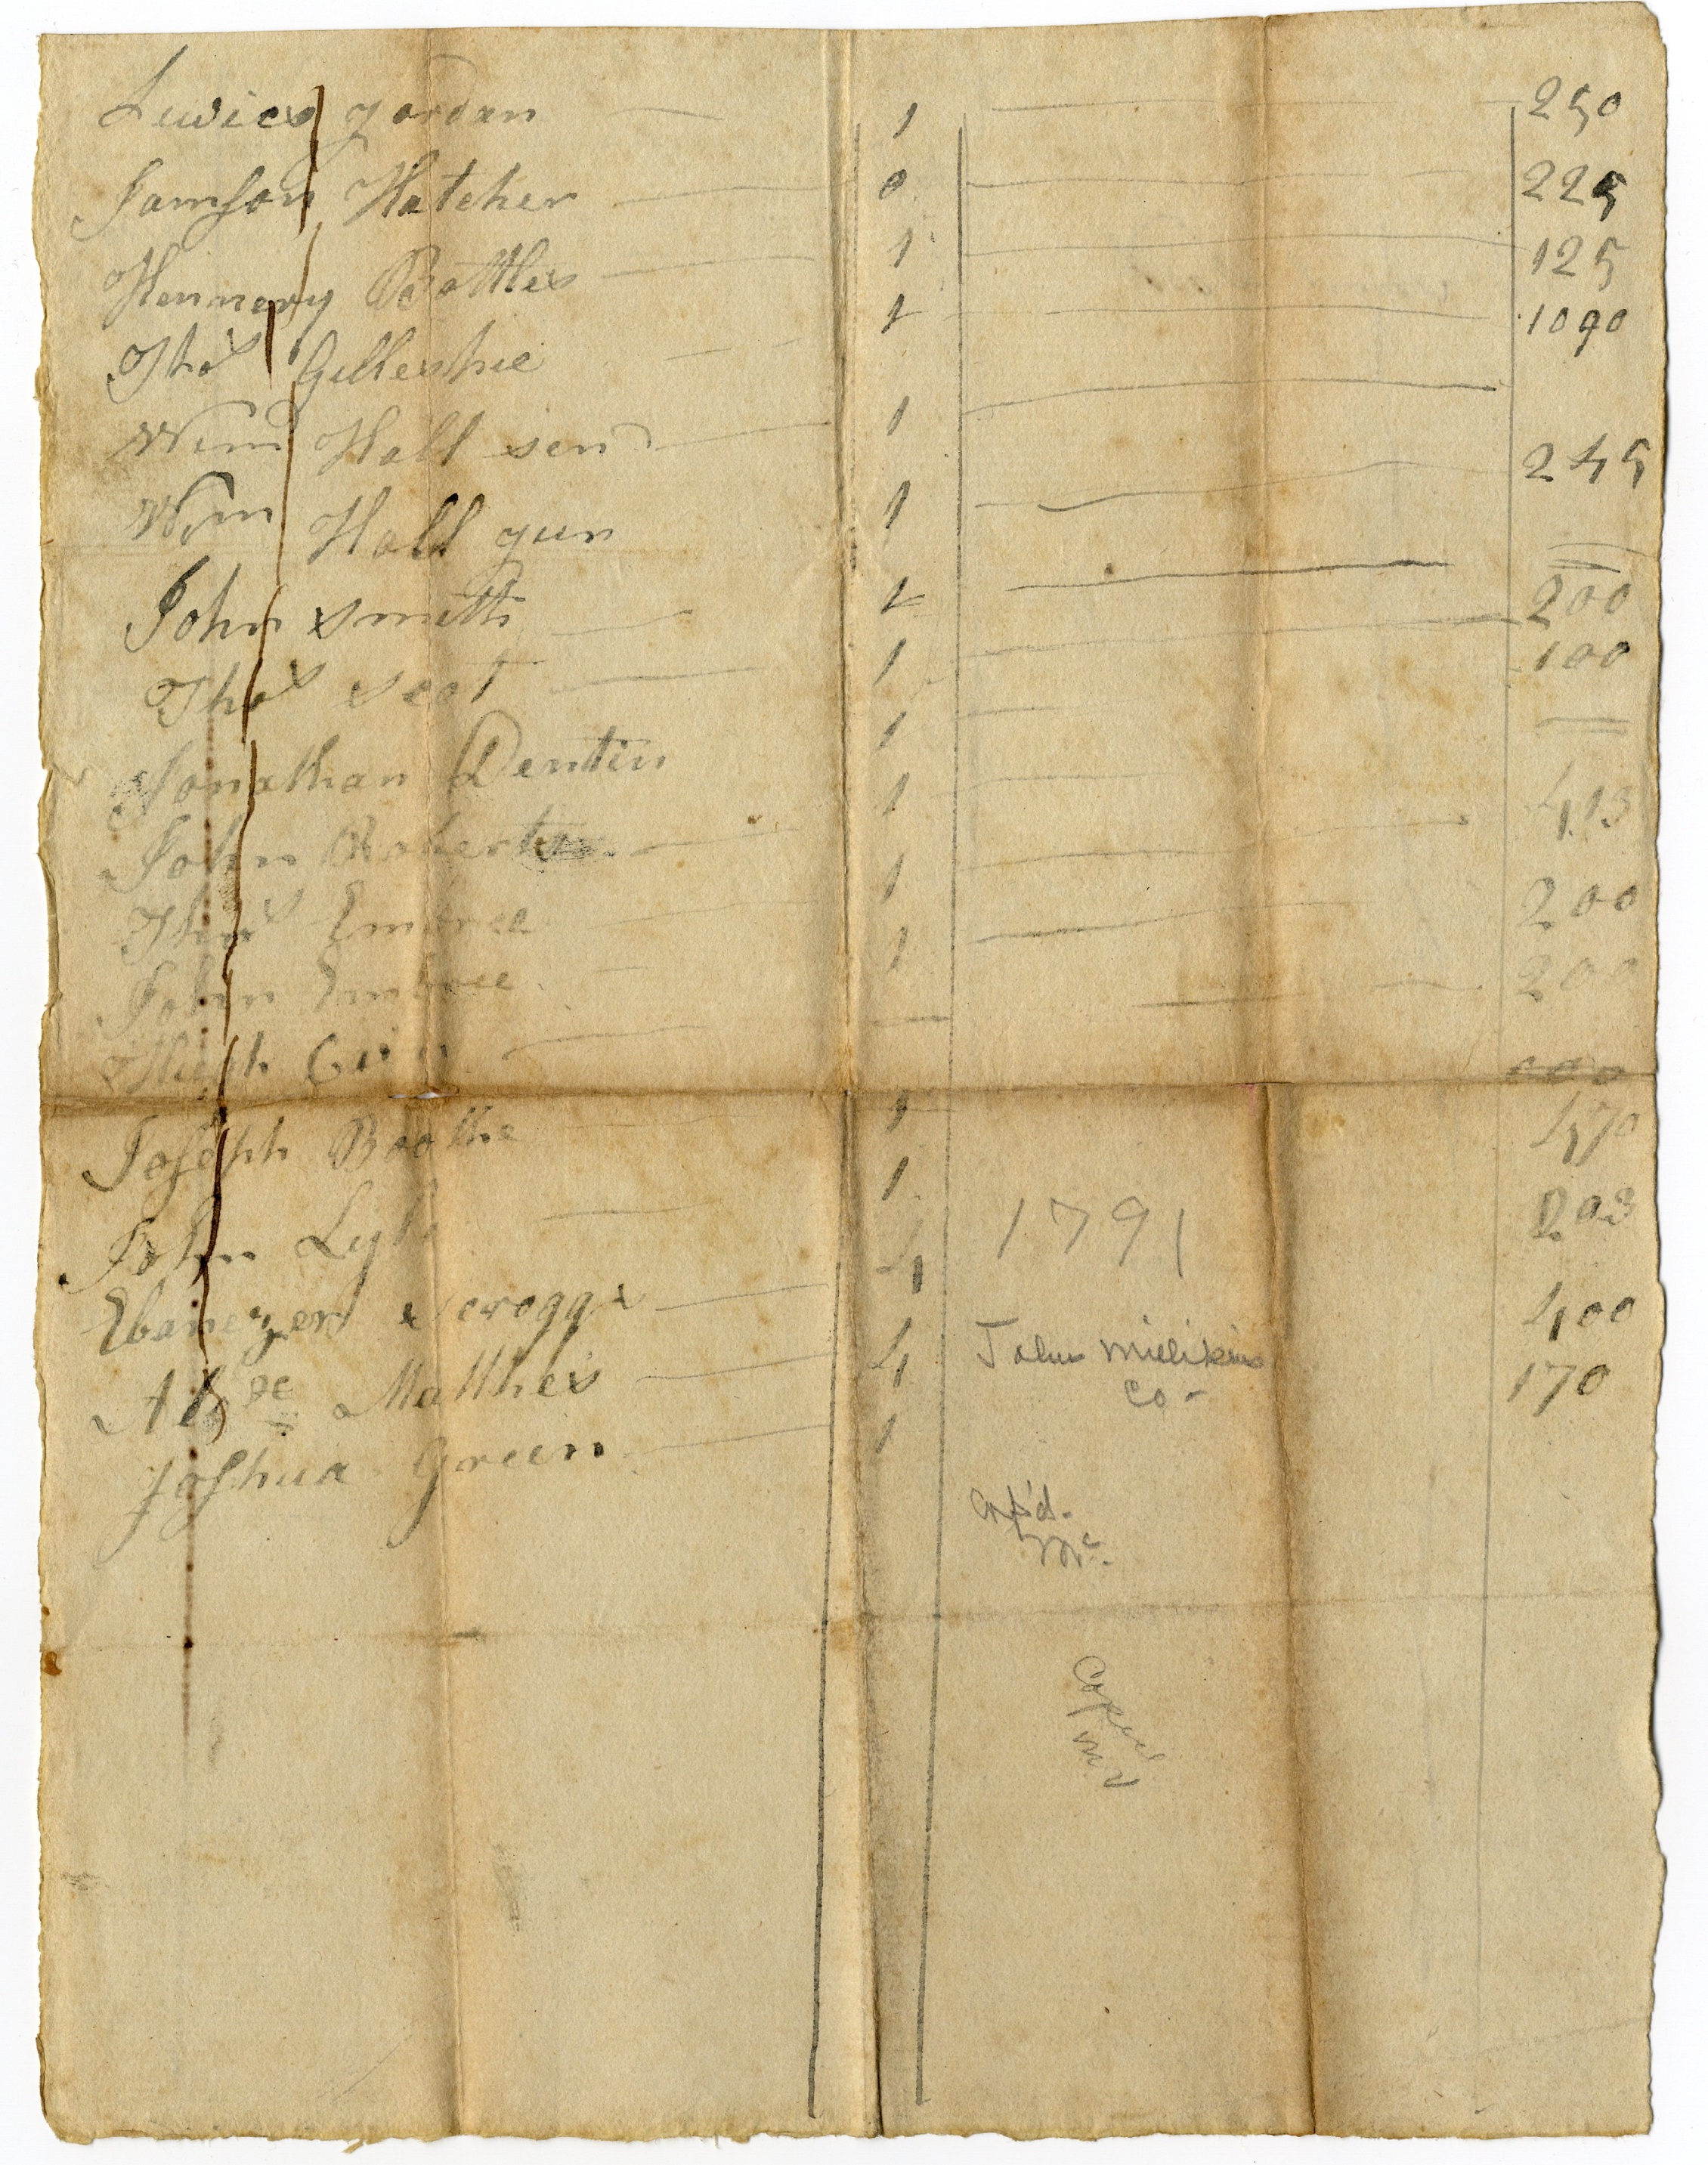 Lewies Jordan — 1 — 250
Jamson Hatcher — 0 — 225
Hennery Bottles — 1 — 125
Thos Gillespie — 1 — 1090
Wim Hall sen — 1 —
Wm Hall jun 1 — 245
John Smith — 1 —
Thos Scot — 1 — 200
100
Jonathan Denten 1 —
John Roberts — 1 — 413
Thos Embree — 1 — 200
John Embree — 1 — 200
Hugh — — 000
Joseph Boothe — 1 470
John Lyle — 1 203
Ebanezer Scroggs — 4 400
Alxe Matthes — 4 170
Joshua Green — 1
1791
John Millikins
Co-
Cop'd.
Mc.
Copied